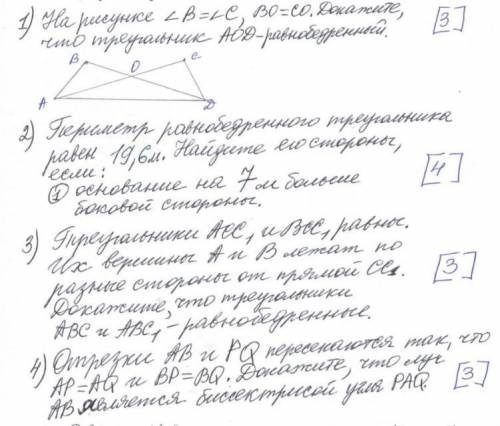 1) На рисунке ∠B=∠C, BO=CO. Докажите,
что треугольник AOD-равнобедренный.
[3]
B O C
A D
2) Периметр равнобедренного треугольника
равен 19,6м. Найдите его стороны,
если:
① основание на 7 м больше
боковой стороны.
[4]
3) Треугольники ACC₁ и BCC₁ равны.
Их вершины A и B лежат по
разные стороны от прямой CC₁.
Докажите, что треугольники
ABC и ABC₁ - равнобедренные.
[3]
4) Отрезки AB и PQ пересекаются так, что
AP=AQ и BP=BQ. Докажите, что луч
AB является биссектрисой угла PAQ
[3]